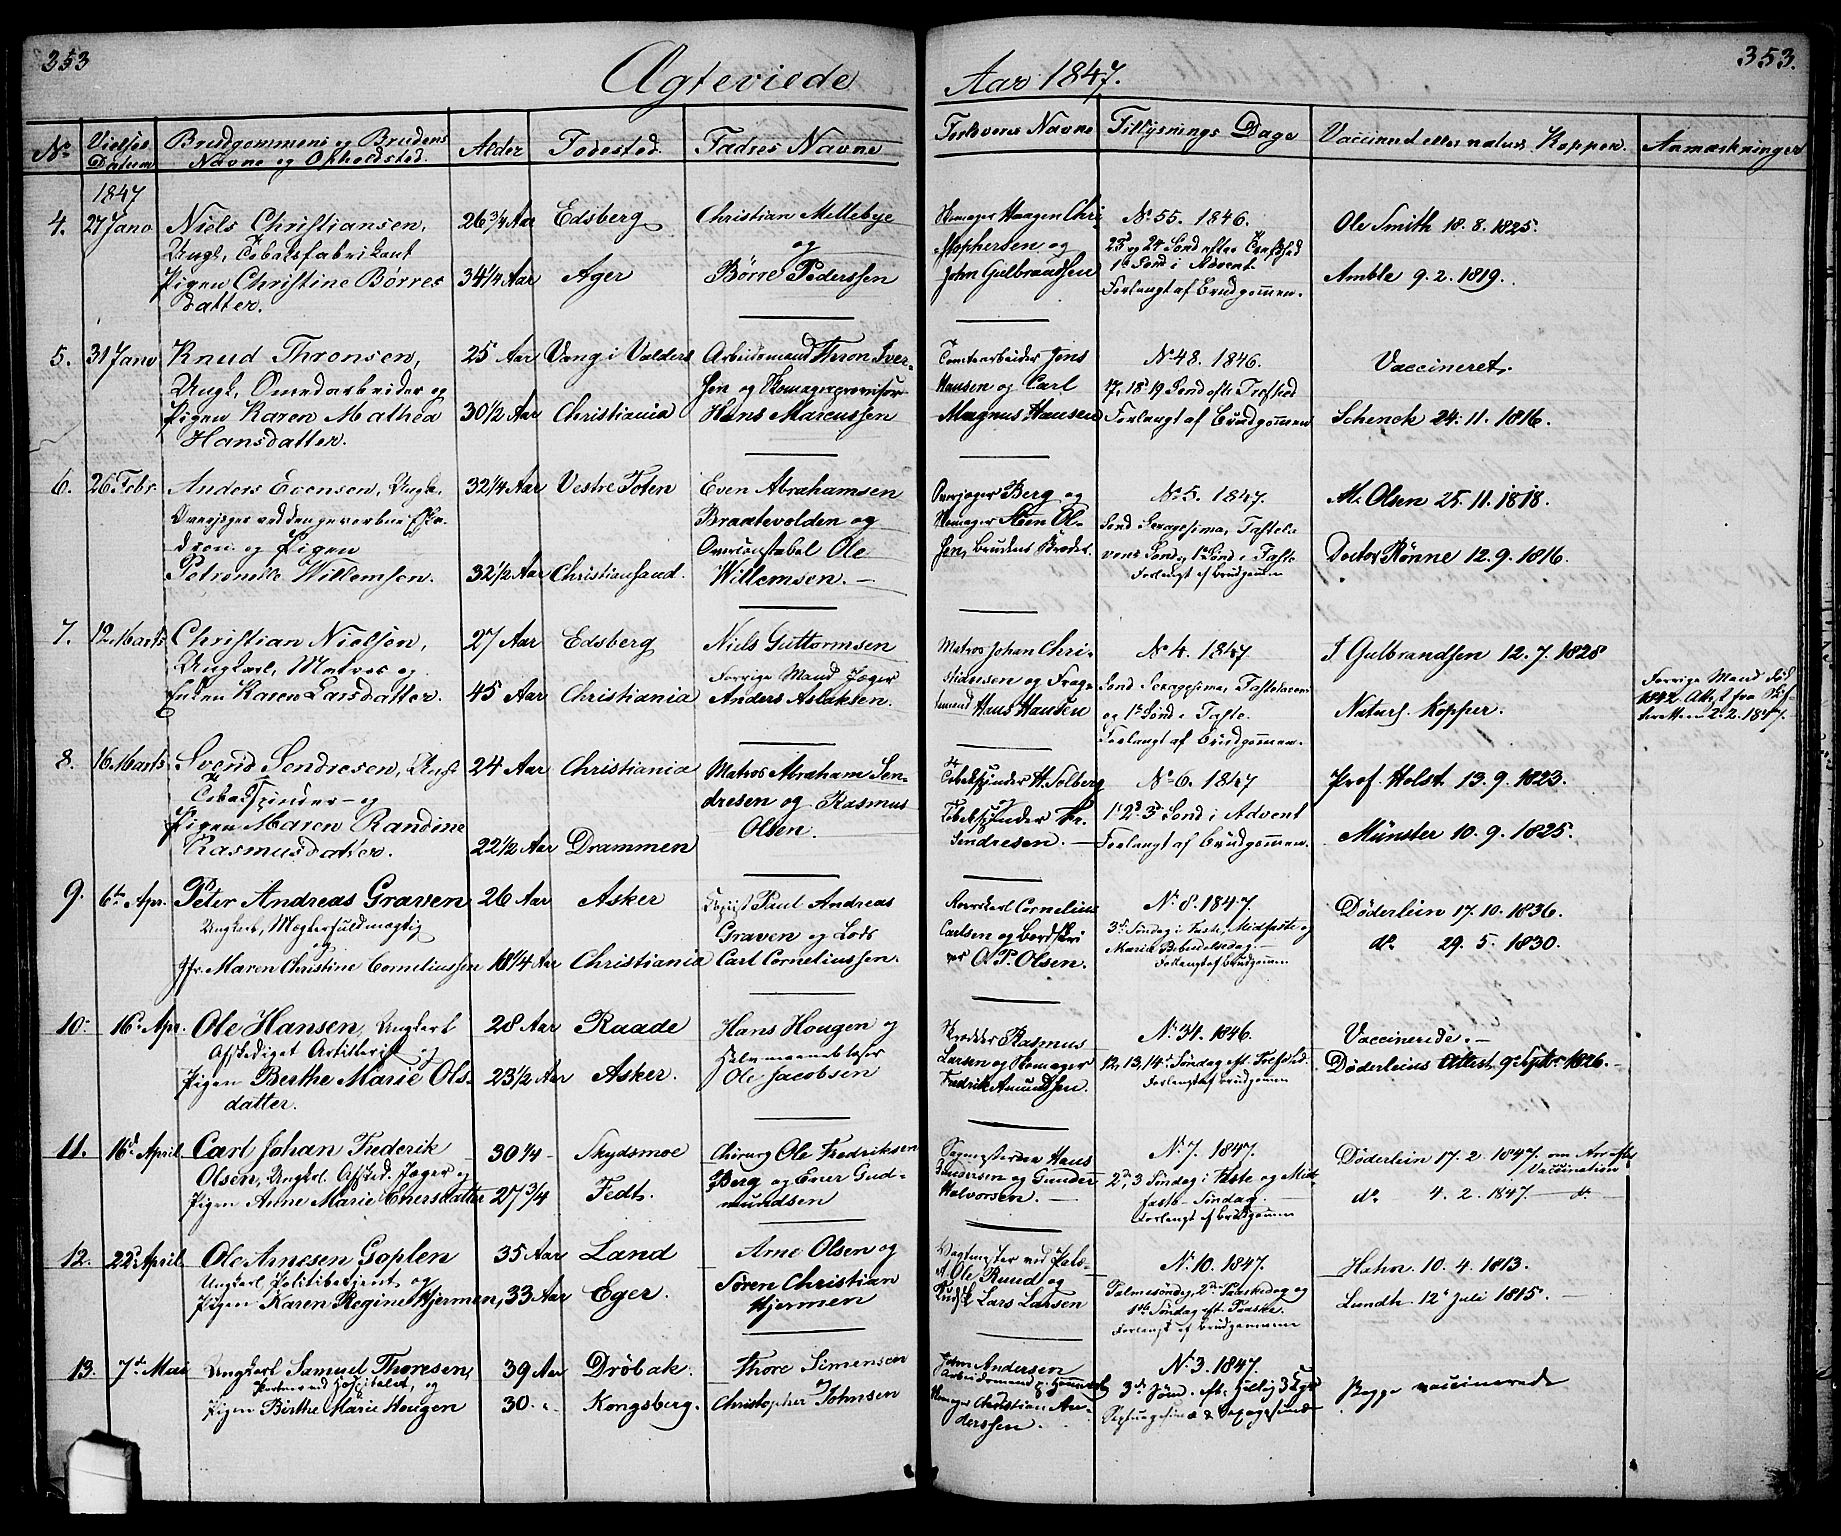 353
Ægteviede
No
Vielses Datum
Brudgommens og Brudens Navne og Opholdsted.
Alder
Fødested.
Fædres Navne
1847
4. 27 Janv
Niels Christiansen, 26 3/4 Aar Edsberg Christian Mellebye
Ungk, Tobaksfabrikant og
Pigen Christine Börres 34 1/4 Aar Ager Börre Pederssen
datter.
5. 31 Janv Knud Thronsen, 25 Aar Vang i Valders Arbeidsmand Thron Iver-
Ungk, og sen og Skomager
Pigen Karen Mathea 30 1/2 Aar Christiania Hans Marcussen
Hansdatter.
6. 26 Febr Anders Evensen, Ungk, 32 1/4 Aar Vestre Toten Even Abrahamsen
Overjæger ved den geworbne Eska- Braatevolden og
dron og Pigen Overconstabel Ole
Petronelle Willemsen. 32 1/2 Aar Christiansand. Willemsen. —
7. 12 Marts Christian Nielsen, 27 Aar Edsberg Niels Guttormsen
Ungkarl, Matros og Forrige Mand Jæger
Enken Karen Larsdatter. 45 Aar Christiania Anders Aslaksen.
8. 16 Marts Svend Sendresen, Ungk 24 Aar Christiania Matros Abraham Sen-
Tobaksspinder og dresen og Rasmus
Pigen Maren Randine Olsen.
Rasmusdatter. 22 1/2 Aar Drammen
9. 6te Apr. Peter Andreas Graven 26 Aar Asker Paul Andreas
Ungkarl, Mæglerfuldmægtig Graven og Lods
og
Jfr. Maren Christine Corneliussen 18 1/4 Aar Christiania Carl Corneliussen.
10. 16d Apr. Ole Hansen, Ungkarl 28 Aar Raade Hans Hougen og
Afskediget Artillerist og
Pigen Berthe Marie Ols- 23 1/2 Aar Asker. Ole Jacobsen
datter.
11. 16d April Carl Johan Frederik 30 1/4 - Skydsmoe Chirurg Ole Fredriksen
Olsen, Ungkl. Afsked. Jæger og Berg og Ener Gud-
Pigen Anne Marie Enersdatter 27 3/4 Fedt. mundsen
12. 22d April Ole Arnesen Goplen 35 Aar Land Arne Olsen og
Ungkarl, Politibetjent og Søren Christian
Pigen Karen Regine Hjermen, 33 Aar Eger. Hjermen
13. 7de Mai Ungkarl Samuel Thoresen, 39 Aar Dröbak. Thore Simensen
Portner ved Hospitalet, og og
Pigen Birthe Marie Hougen 30. Kongsberg. Christopher Johnsen
353.
Aar 1847.
Forloveres Navne
Tillysnings Dage
Vaccineret eller naturl Kopper.
Anmærkninger
Skomager Haagen Chri- No 55. 1846. Ole Smith 18. 8. 1825.
stophersen og 23d og 24 Sönd efter Trefoldhed
John Gulbrandsen 1ste Sönd i Advent Amble 9. 2. 1819.
Forlangt af Brudgommen.
Tomtearbeider Jens No 48. 1846. Vaccineret.
Hansen og Carl 17, 18 19 Sönd efter Trefoldhed
Magnus Hansen Forlangt af Brudgommen Schenck 24. 11. 1816.
Overjæger Berg og No 5. 1847. M. Olsen 25. 11. 1818.
Skomager Steen Ol- Sönd Sexagesima, Fastela-
sen, Brudens Broder. vens Sönd, 1ste Sönd i Faste Doctor Rönne 12. 9. 1816.
Forlangt af Brudgommen
Matros Johan Chri- No 4. 1847. I Gulbrandsen 12. 7. 1828
stiansen og Sönd Sexagesima, Fastelavn
Hans Hansen og 1ste Sönd i Faste. Naturl. Kopper.
Forlangt af Brudgommen.
Forrige Mand död
1842. Attest fra Skif-
teretten 2. 2. 1847.
Tobaksspinder H. Solberg No 6. 1847 Prof. Holst 13. 9. 1823.
og
Tobaksspinder 1ste 2d 3d Sönd i Advent
Sendresen. Forlangt af Brudgommen. Münster 10. 9. 1825.
Cornelius No 8. 1847. Döderlein 17. 10. 1836.
Carlsen og 3de Söndag i Faste, Midfaste og
O. P. Olsen. Mariæ Bebudelsesdag. do 29. 5. 1830.
Forlangt af Brudgommen
Skrædder Rasmus No 34. 1846. Vaccinerede. —
Larsen og Skomager 12, 13, 14de Söndag eft. Trefoldhed. Döderleins Attest 9de Septr. 1826. —
Fredrik Amundsen. Forlangt af Brudgommen
Hans No 7. 1847. Döderlein 17. 2. 1847. om
og Gunder 2d, 3 Söndag i Faste og Mid- Vaccination
Halvorsen. — faste Söndag. do 4. 2. 1847. — do
Forlangt af Brudgommen
Vagtmester ved Pala- No 10. 1847. Hahn 10. 4. 1813.
Ole Ruud og Palmesöndag, 2den Paaskedag og
Lars Larsen 1ste Söndag eft. Paaske. Lundh 12te Juli 1815. —
Forlangt af Brudgommen
John Andersen No 3. 1847.
Arbeidsmand 3de Sönd. eft. Hellig 3 Kgr Begge vaccinerede
Skomager Christian An- Septuagesima & Sexagesima
derssen.